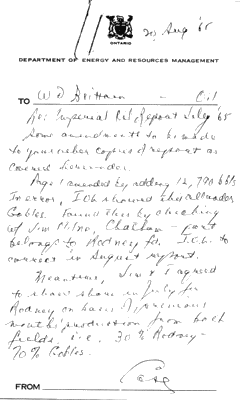 20 Aug '65
ONTARIO
DEPARTMENT OF ENERGY AND RESOURCES MANAGEMENT
TO W D Brittain - Oil
Re: Imperial Ref Report July '65
Some amendments to be made
to your other copies of report as
covered hereunder.
Page 1 amended by adding 12,790 bbls
In error, I.O.L. showed this all under
Gobles. Found this by checking
w/ Jim Milne, Chatham - part
belongs to Rodney fld. I.O.L. to
correct in August report.
Meantime, Jim & I agreed
to show in July for
Rodney on basis of previous
months' production from both
fields, i.e. 30% Rodney -
70% Gobles.
FROM